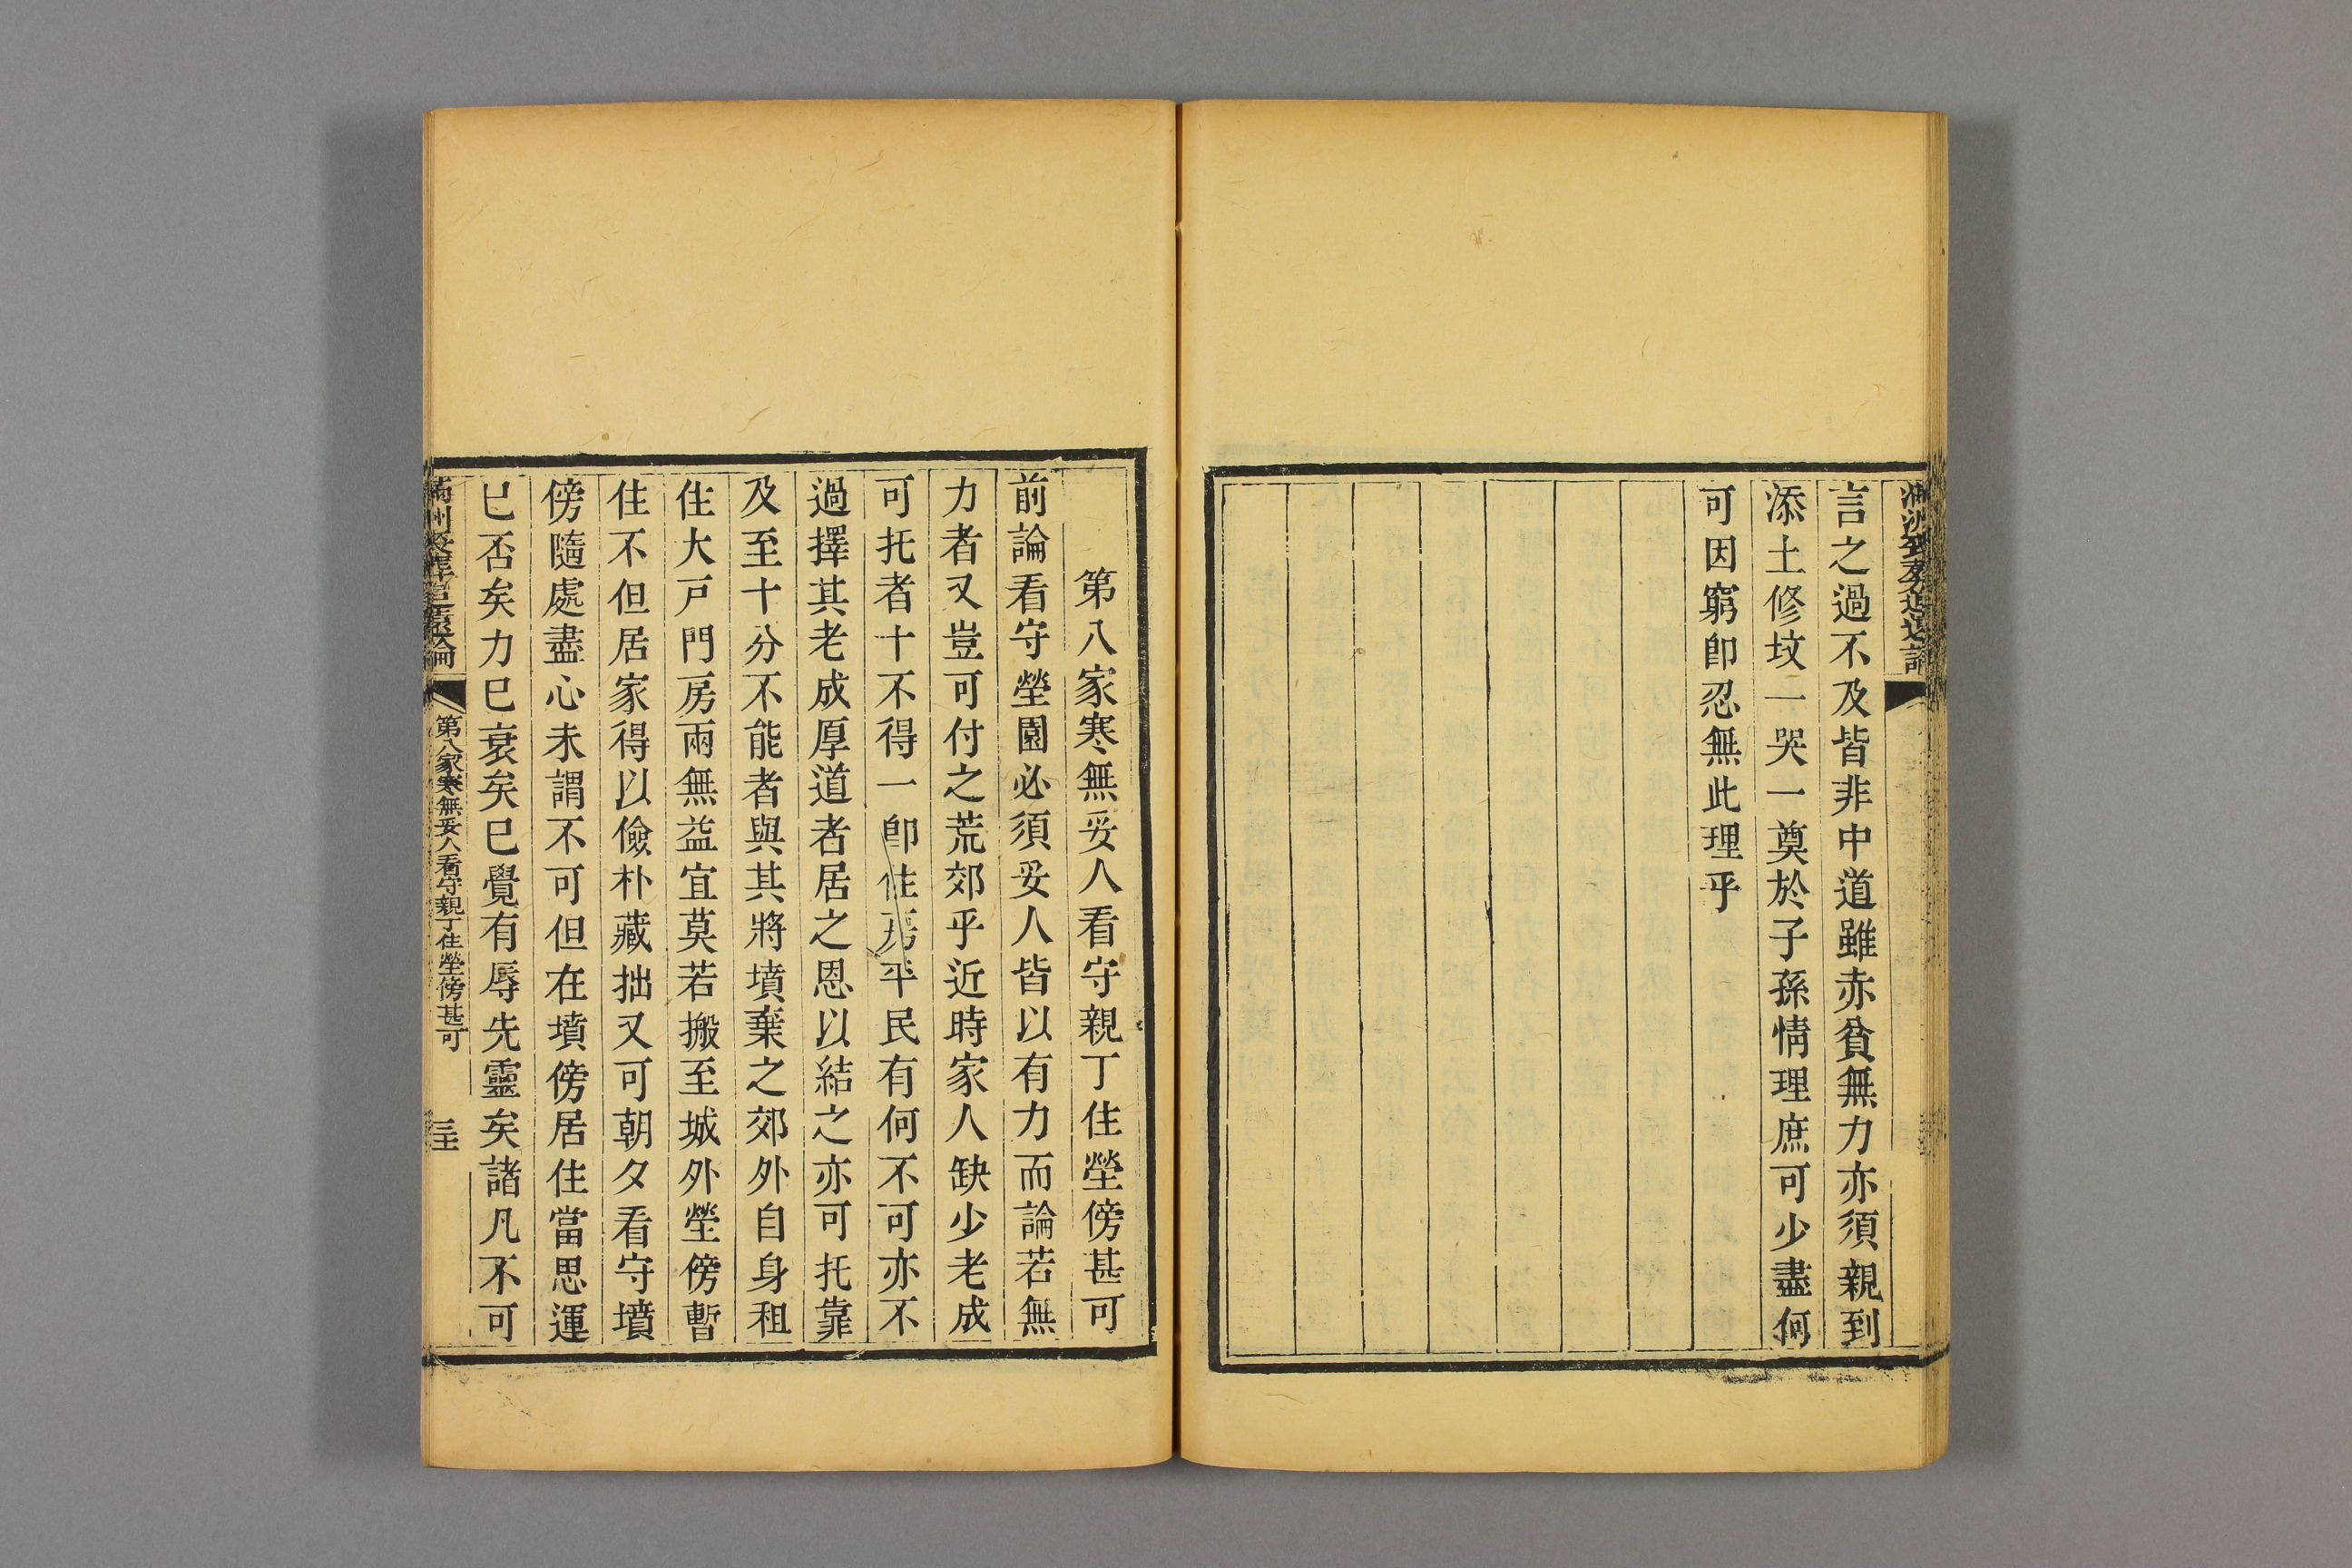 言之過不及皆非中道雖赤貧無力亦須親到
添土修坟一哭一奠於子孫情理庶可少盡何
可因窮即忍無此理乎
第八家寒無妥人看守親丁住塋傍甚可
前論看守塋園必須妥人皆以有力而論若無
力者又豈可付之荒郊乎近時家人缺少老成
可托者十不得一即住房平民有何不可亦不
過擇其老成厚道者居之恩以結之亦可托靠
及至十分不能者與其將墳棄之郊外自身租
住大戸門房兩無益宜莫若搬至城外塋傍暫
住不但居家得以儉朴藏拙又可朝夕看守墳
傍隨處盡心未謂不可但在墳傍居住當思運
已否矣力已衰矣已覺有辱先靈矣諸凡不可
第八家寒無妥人看守親丁住塋傍甚可